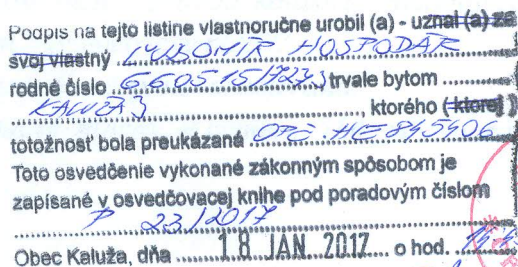 Podpis na tejto listine vlastnoručne urobil (a) - uznal (a) za
svoj vlastný ĽUBOMÍR HOSPODÁR
rodné číslo 660515/723 trvale bytom
KALUŽA 3, ktorého (ktorej)
totožnosť bola preukázaná OPč. HE845406
Toto osvedčenie vykonané zákonným spôsobom je
zapísané v osvedčovacej knihe pod poradovým číslom
P 23/2017
Obec Kaluža, dňa 18 JAN. 2017 o hod.